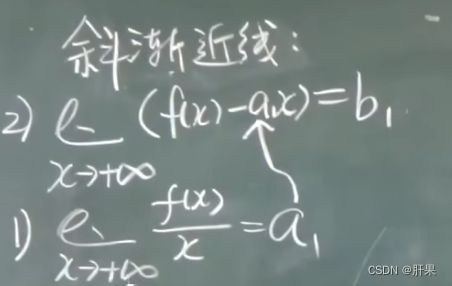 斜渐近线:
2) ℓ (f(x)-a₁x)=b₁
x→+∞
1) ℓ f(x)/x=a₁
x→+∞
CSDN @肝果